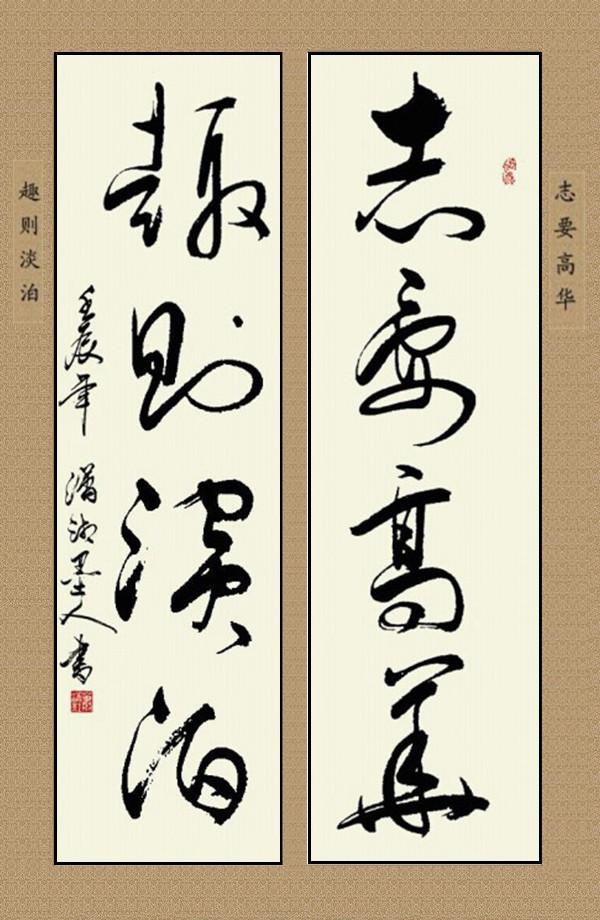 志要高华
志要高華
趣则淡泊
壬辰年 潇湘墨人书
趣则淡泊